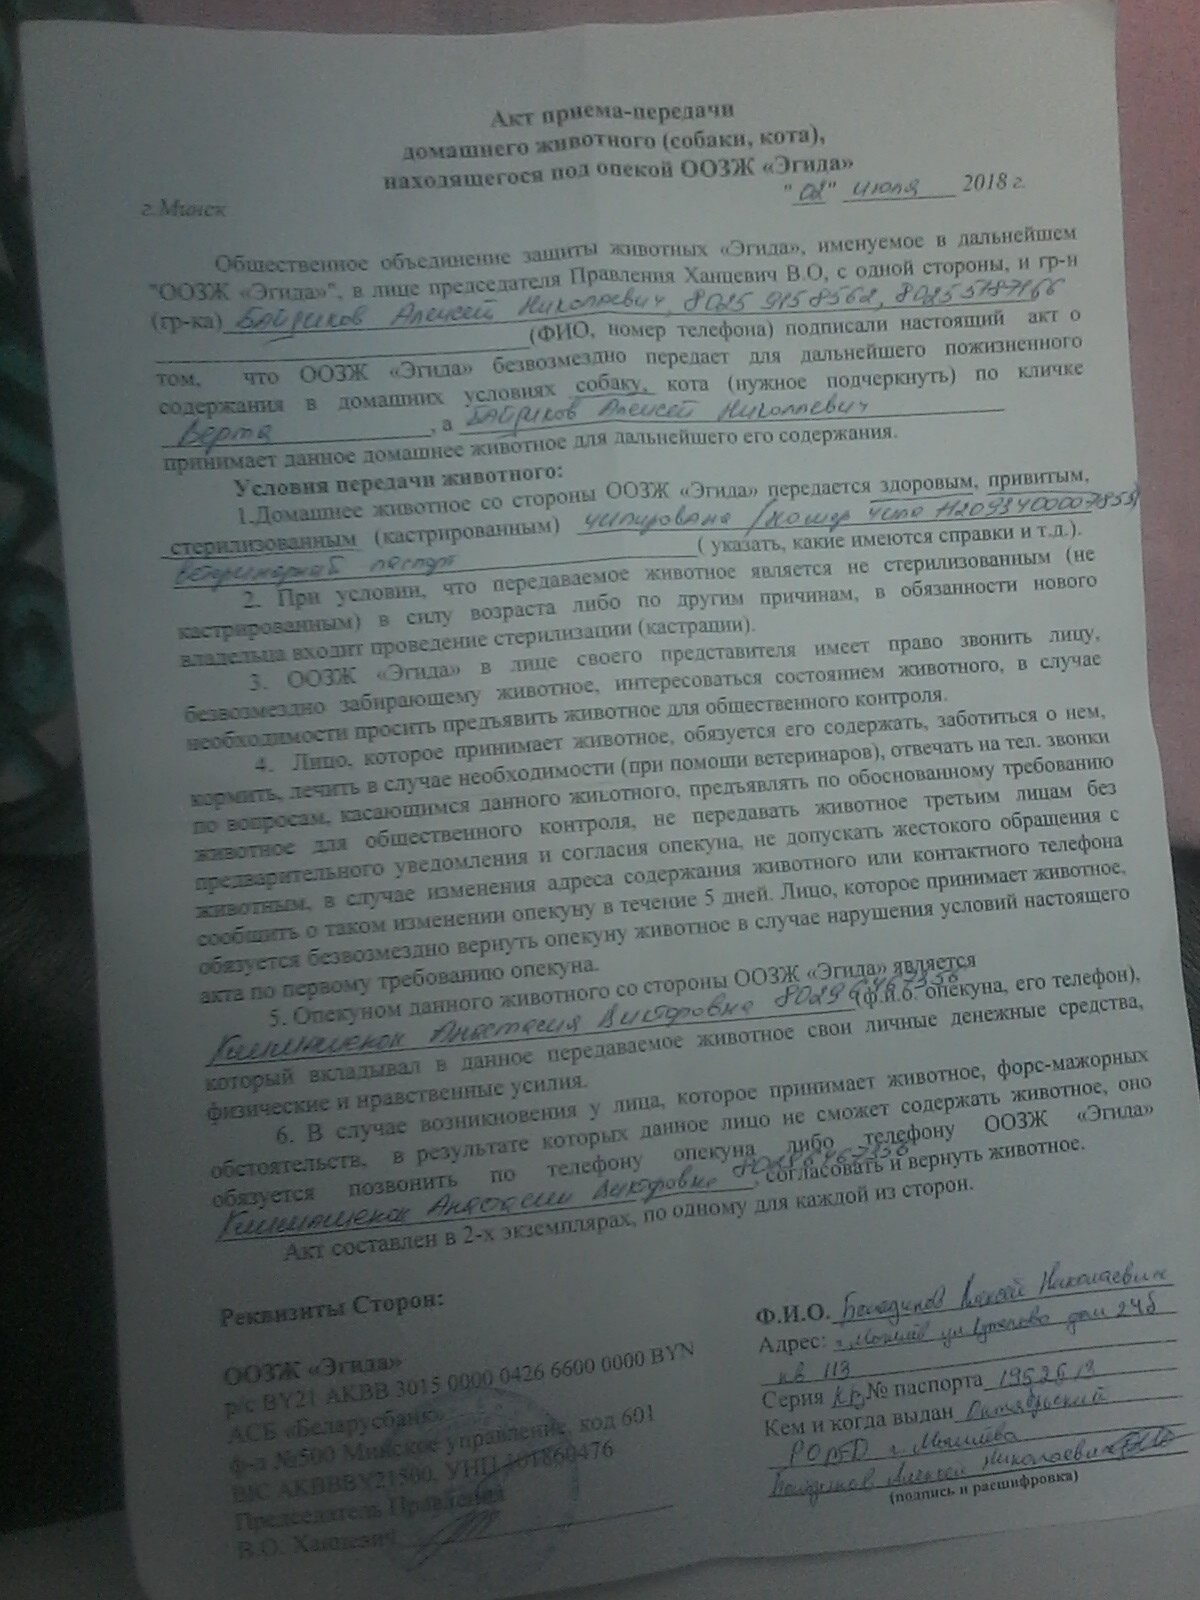 Акт приема-передачи
домашнего животного (собаки, кота),
находящегося под опекой ООЗЖ «Эгида»
г.Минск "02" июля 2018 г.
Общественное объединение защиты животных «Эгида», именуемое в дальнейшем
"ООЗЖ «Эгида»", в лице председателя Правления Ханцевич В.О, с одной стороны, и гр-н
(гр-ка) Алексей Николаевич, 8025 9158562, 8025 5187166
(ФИО, номер телефона) подписали настоящий акт о
том, что ООЗЖ «Эгида» безвозмездно передает для дальнейшего пожизненного
содержания в домашних условиях собаку, кота (нужное подчеркнуть) по кличке
Верта, а Алексей Николаевич
принимает данное домашнее животное для дальнейшего его содержания.
Условия передачи животного:
1.Домашнее животное со стороны ООЗЖ «Эгида» передается здоровым, привитым,
стерилизованным (кастрированным) чипирована /номер чипа
ветеринарный паспорт ( указать, какие имеются справки и т.д.).
2. При условии, что передаваемое животное является не стерилизованным (не
кастрированным) в силу возраста либо по другим причинам, в обязанности нового
владельца входит проведение стерилизации (кастрации).
3. ООЗЖ «Эгида» в лице своего представителя имеет право звонить лицу,
безвозмездно забирающему животное, интересоваться состоянием животного, в случае
необходимости просить предъявить животное для общественного контроля.
4. Лицо, которое принимает животное, обязуется его содержать, заботиться о нем,
кормить, лечить в случае необходимости (при помощи ветеринаров), отвечать на тел. звонки
по вопросам, касающимся данного животного, предъявлять по обоснованному требованию
животное для общественного контроля, не передавать животное третьим лицам без
предварительного уведомления и согласия опекуна, не допускать жестокого обращения с
животным, в случае изменения адреса содержания животного или контактного телефона
сообщить о таком изменении опекуну в течение 5 дней. Лицо, которое принимает животное,
обязуется безвозмездно вернуть опекуну животное в случае нарушения условий настоящего
акта по первому требованию опекуна.
5. Опекуном данного животного со стороны ООЗЖ «Эгида» является
Анастасия Викторовна (ф.и.о. опекуна, его телефон),
который вкладывал в данное передаваемое животное свои личные денежные средства,
физические и нравственные усилия.
6. В случае возникновения у лица, которое принимает животное, форс-мажорных
обстоятельств, в результате которых данное лицо не сможет содержать животное, оно
обязуется позвонить по телефону опекуна либо телефону ООЗЖ «Эгида»
Викторовна , согласовать и вернуть животное.
Акт составлен в 2-х экземплярах, по одному для каждой из сторон.
Реквизиты Сторон:
ООЗЖ «Эгида»
р/с BY21 AKBB 3015 0000 0426 6600 0000 BYN
АСБ «Беларусбанк»
ф-л №500 Минское управление, код 601
BIC AKBBBY21500, УНП 101860476
Председатель Правления
В.О. Ханцевич
Ф.И.О. Алексей Николаевич
Адрес: г. Могилёв ул дом 24б
кв 113
Серия КВ № паспорта
Кем и когда выдан Октябрьский
г. Могилёва
Алексей Николаевич
(подпись и расшифровка)